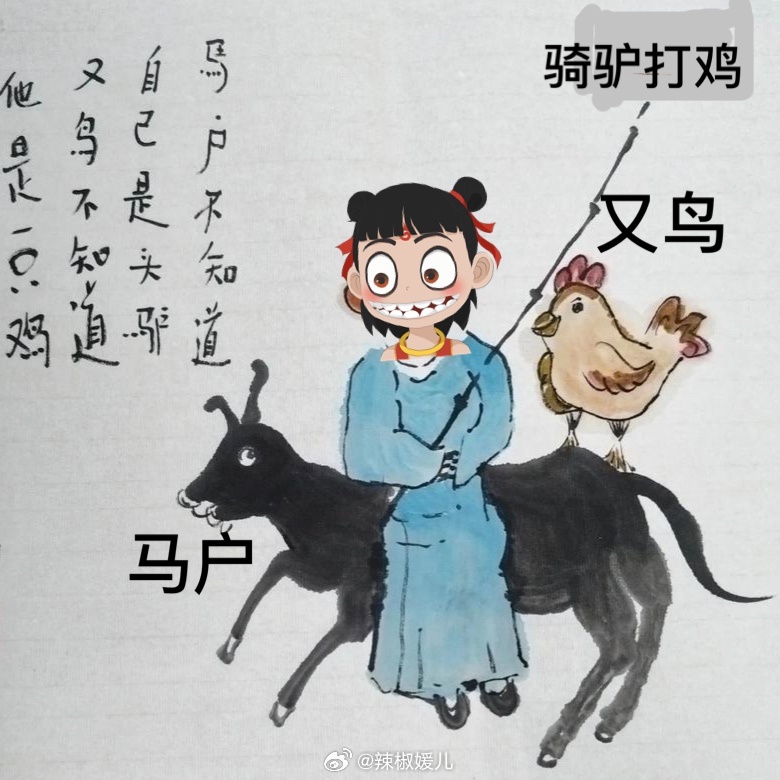 骑驴打鸡
又鸟
马户
馬户不知道
自己是头驴
又鸟不知道
他是一只鸡
@辣椒媛儿